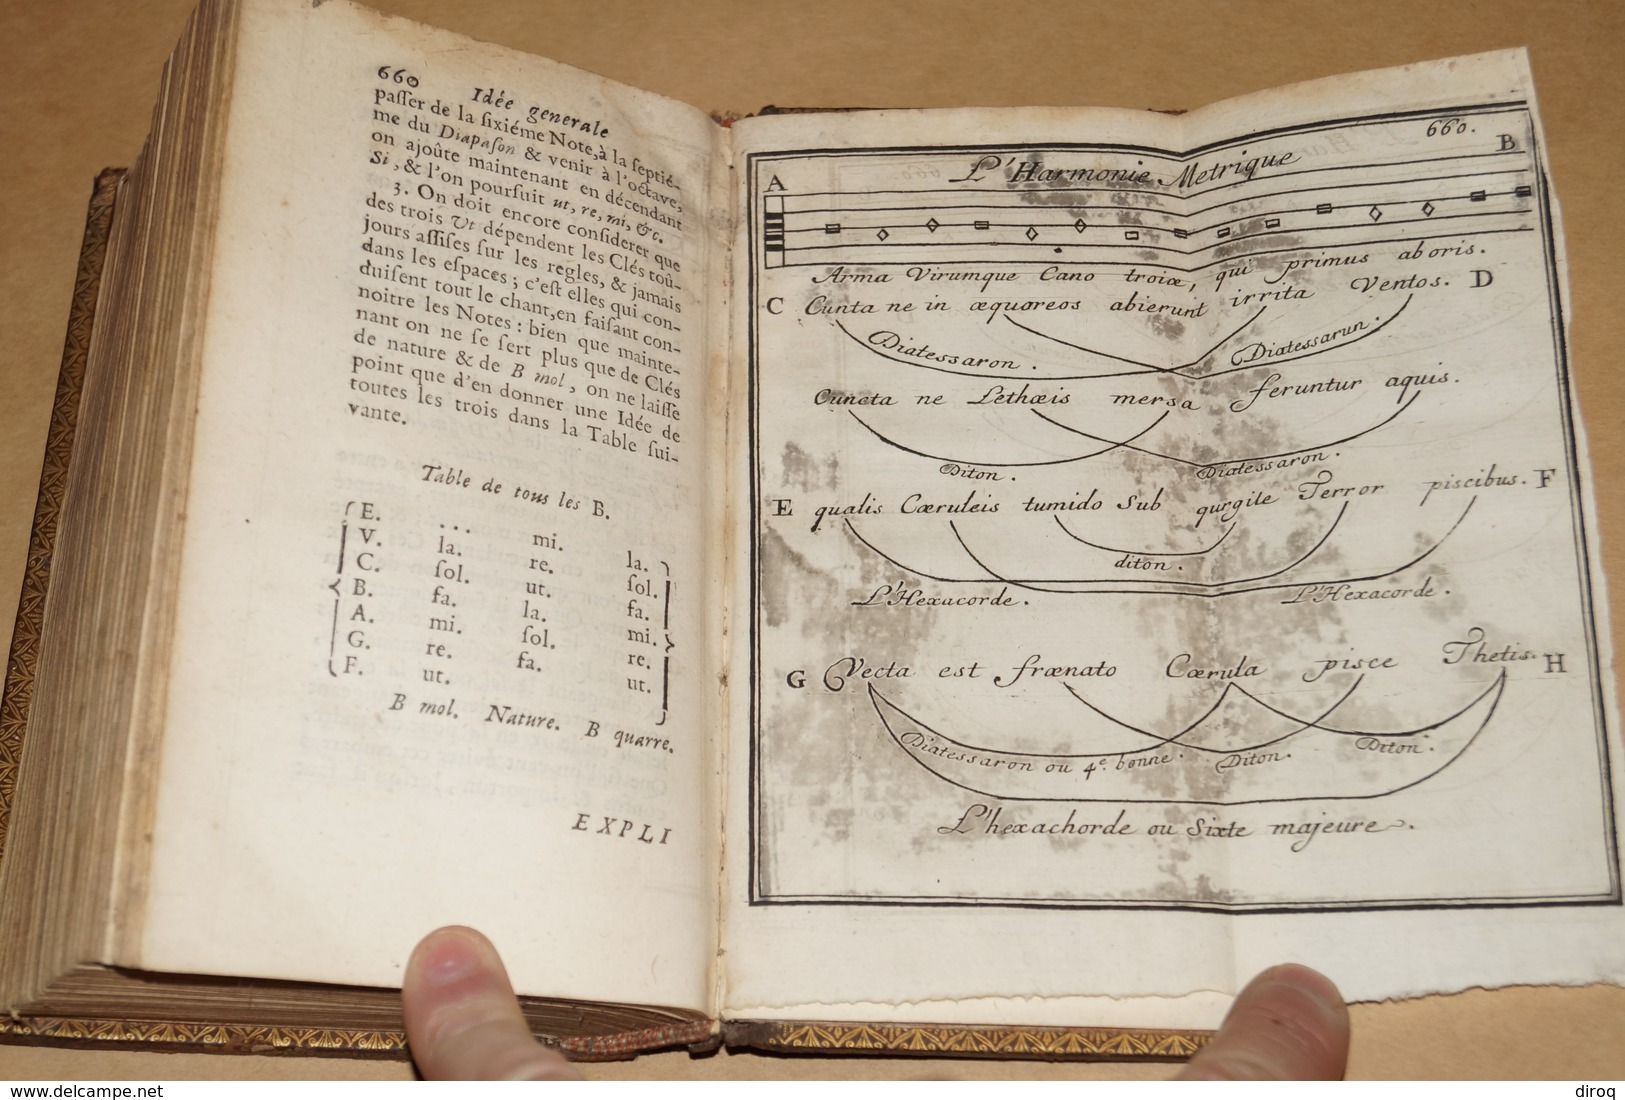 660 Idée generale
paſſer de la ſixiéme Note, à la ſeptié-
me du Diapaſon & venir à l'octave,
on ajoûte maintenant en décendant
Si, & l'on pourſuit ut, re, mi, &c.
3. On doit encore conſiderer que
des trois Ut dépendent les Clés toû-
jours aſſiſes ſur les regles, & jamais
dans les eſpaces; c'eſt elles qui con-
duiſent tout le chant, en faiſant con-
noitre les Notes: bien que mainte-
nant on ne ſe ſert plus que de Clés
de nature & de B mol, on ne laiſſe
point que d'en donner une Idée de
toutes les trois dans la Table ſui-
vante.
Table de tous les B.
E. ... mi. la.
V. la. re. ſol.
C. ſol. ut. fa.
B. fa. la. mi.
A. mi. ſol. re.
G. re. fa. ut.
F. ut.
B mol. Nature. B quarre.
EXPLI
660.
L'Harmonie Metrique
A B
Arma Virumque Cano troiæ, qui primus aboris.
C Cunta ne in æquoreos abierunt irrita Ventos. D
Diatessaron. Diatessarun.
Cuncta ne Lethæis mersa feruntur aquis.
Diton. Diatessaron.
E qualis Cæruleis tumido Sub qurgile Terror piscibus. F
diton.
L'Hexacorde. L'Hexacorde.
G Vecta est frænato Cærula pisce Thetis. H
Diatessaron ou 4e. bonne. Diton. Diton.
L'hexachorde ou Sixte majeure.
www.delcampe.net
diroq